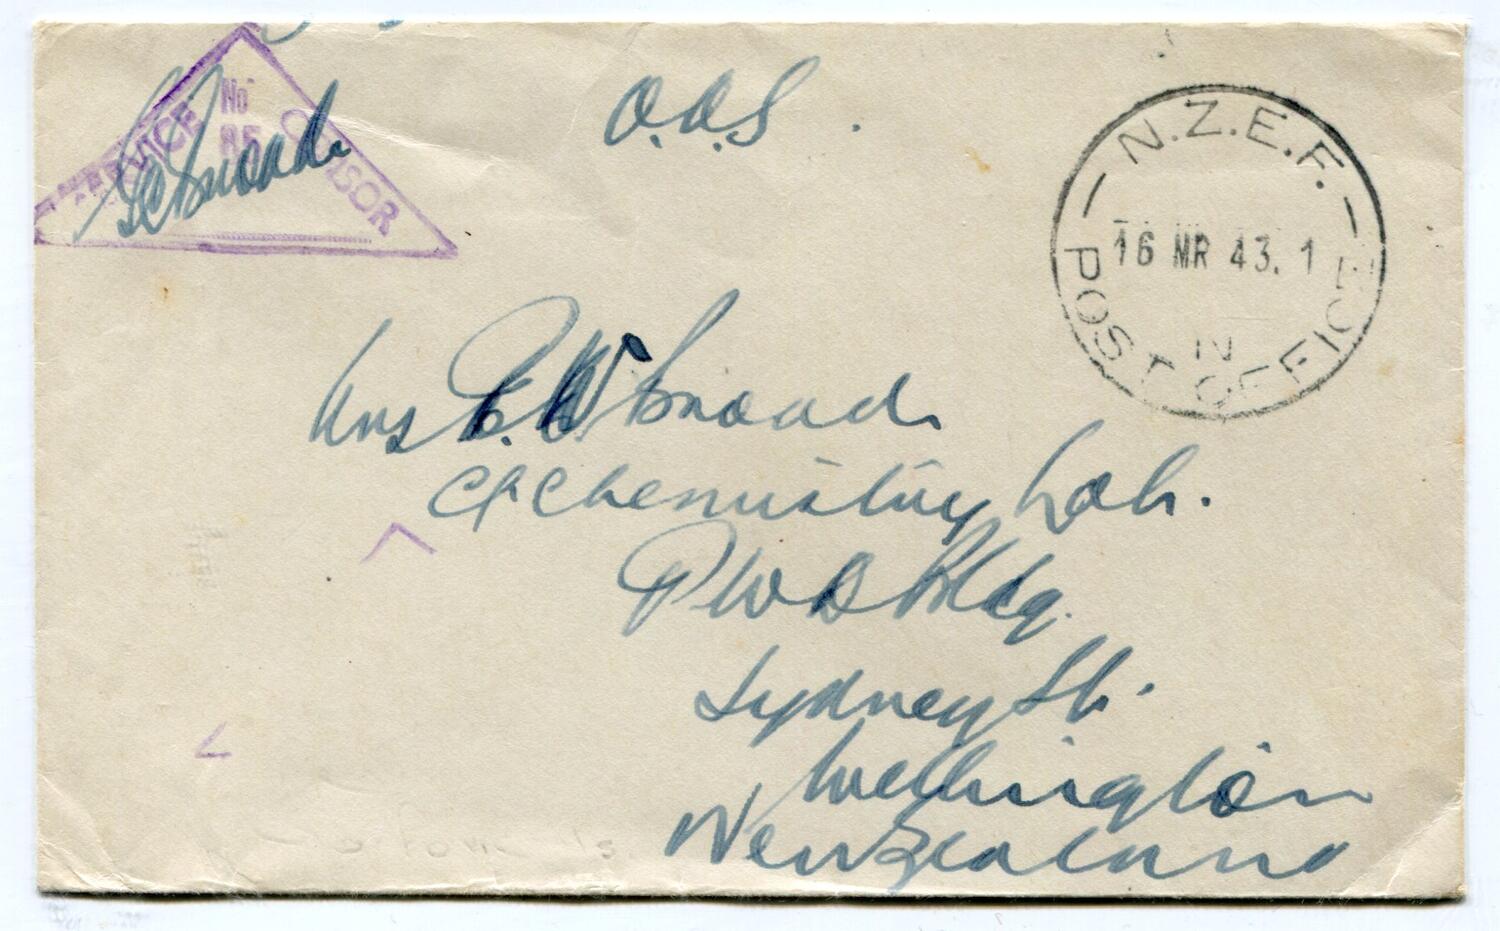 SERVICE CENSOR
No
85
O.A.S.
N.Z.E.F.
16 MR 43.1
N
POST OFFICE
Mrs E.W. Snoad.
C/o Chemistry Lab.
P W D Bldg.
Sydney St.
Wellington
New Zealand